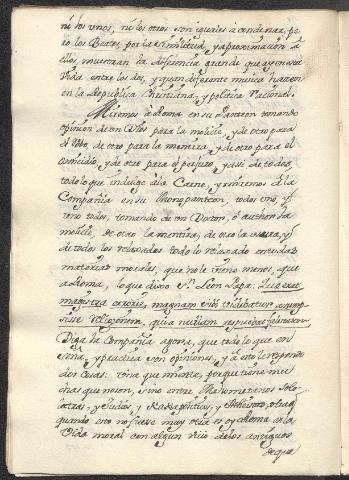 ni los unos, ni los otros son iguales à condenar, pe
ro los Botes, por la similitud, y aproximacion à
ellos, muestran la diferencia grande que ay en esta
Vida entre los dos, y quan diferente musica hazen
en la Republica Christiana, y politica Racional.
Miremos à Roma en su Panteon tomando
opinion de un Dios para la molicie, y de otro para
el Robo, de otro para la mentira, y de otro para el
omicidio, y de otro para el perjuro, y assi de todos
todo lo que indulge à la Carne, y miremos à la
Compañia en su Monopanteon, todos uno, y
uno todos, tomando de un Doctor, ò author la
molicie, de otro la mentira, de otro la usura, y
de todos los relaxados todo lo relaxado en todas
materias morales, que no le viene menos, que
à Roma, lo que dixo Sn. Leon Papa: Quae erat
magistra erroris, magnam sibi videbatur assump
sisse religionem, quia nullam respuebat falsitatem.
Diga la Compañia agora, que todo lo que en
seña, y practica son opiniones, y à esto le respondo
dos cosas: Una que miente, porque tiene mu
chas que no son, sino entre Mahometanos Ido
latras, y Judios, y Atheistas, otra, que
quando esto no fuesse muy otra es oy Roma en la
Vida moral con algun vicio de los antiguos